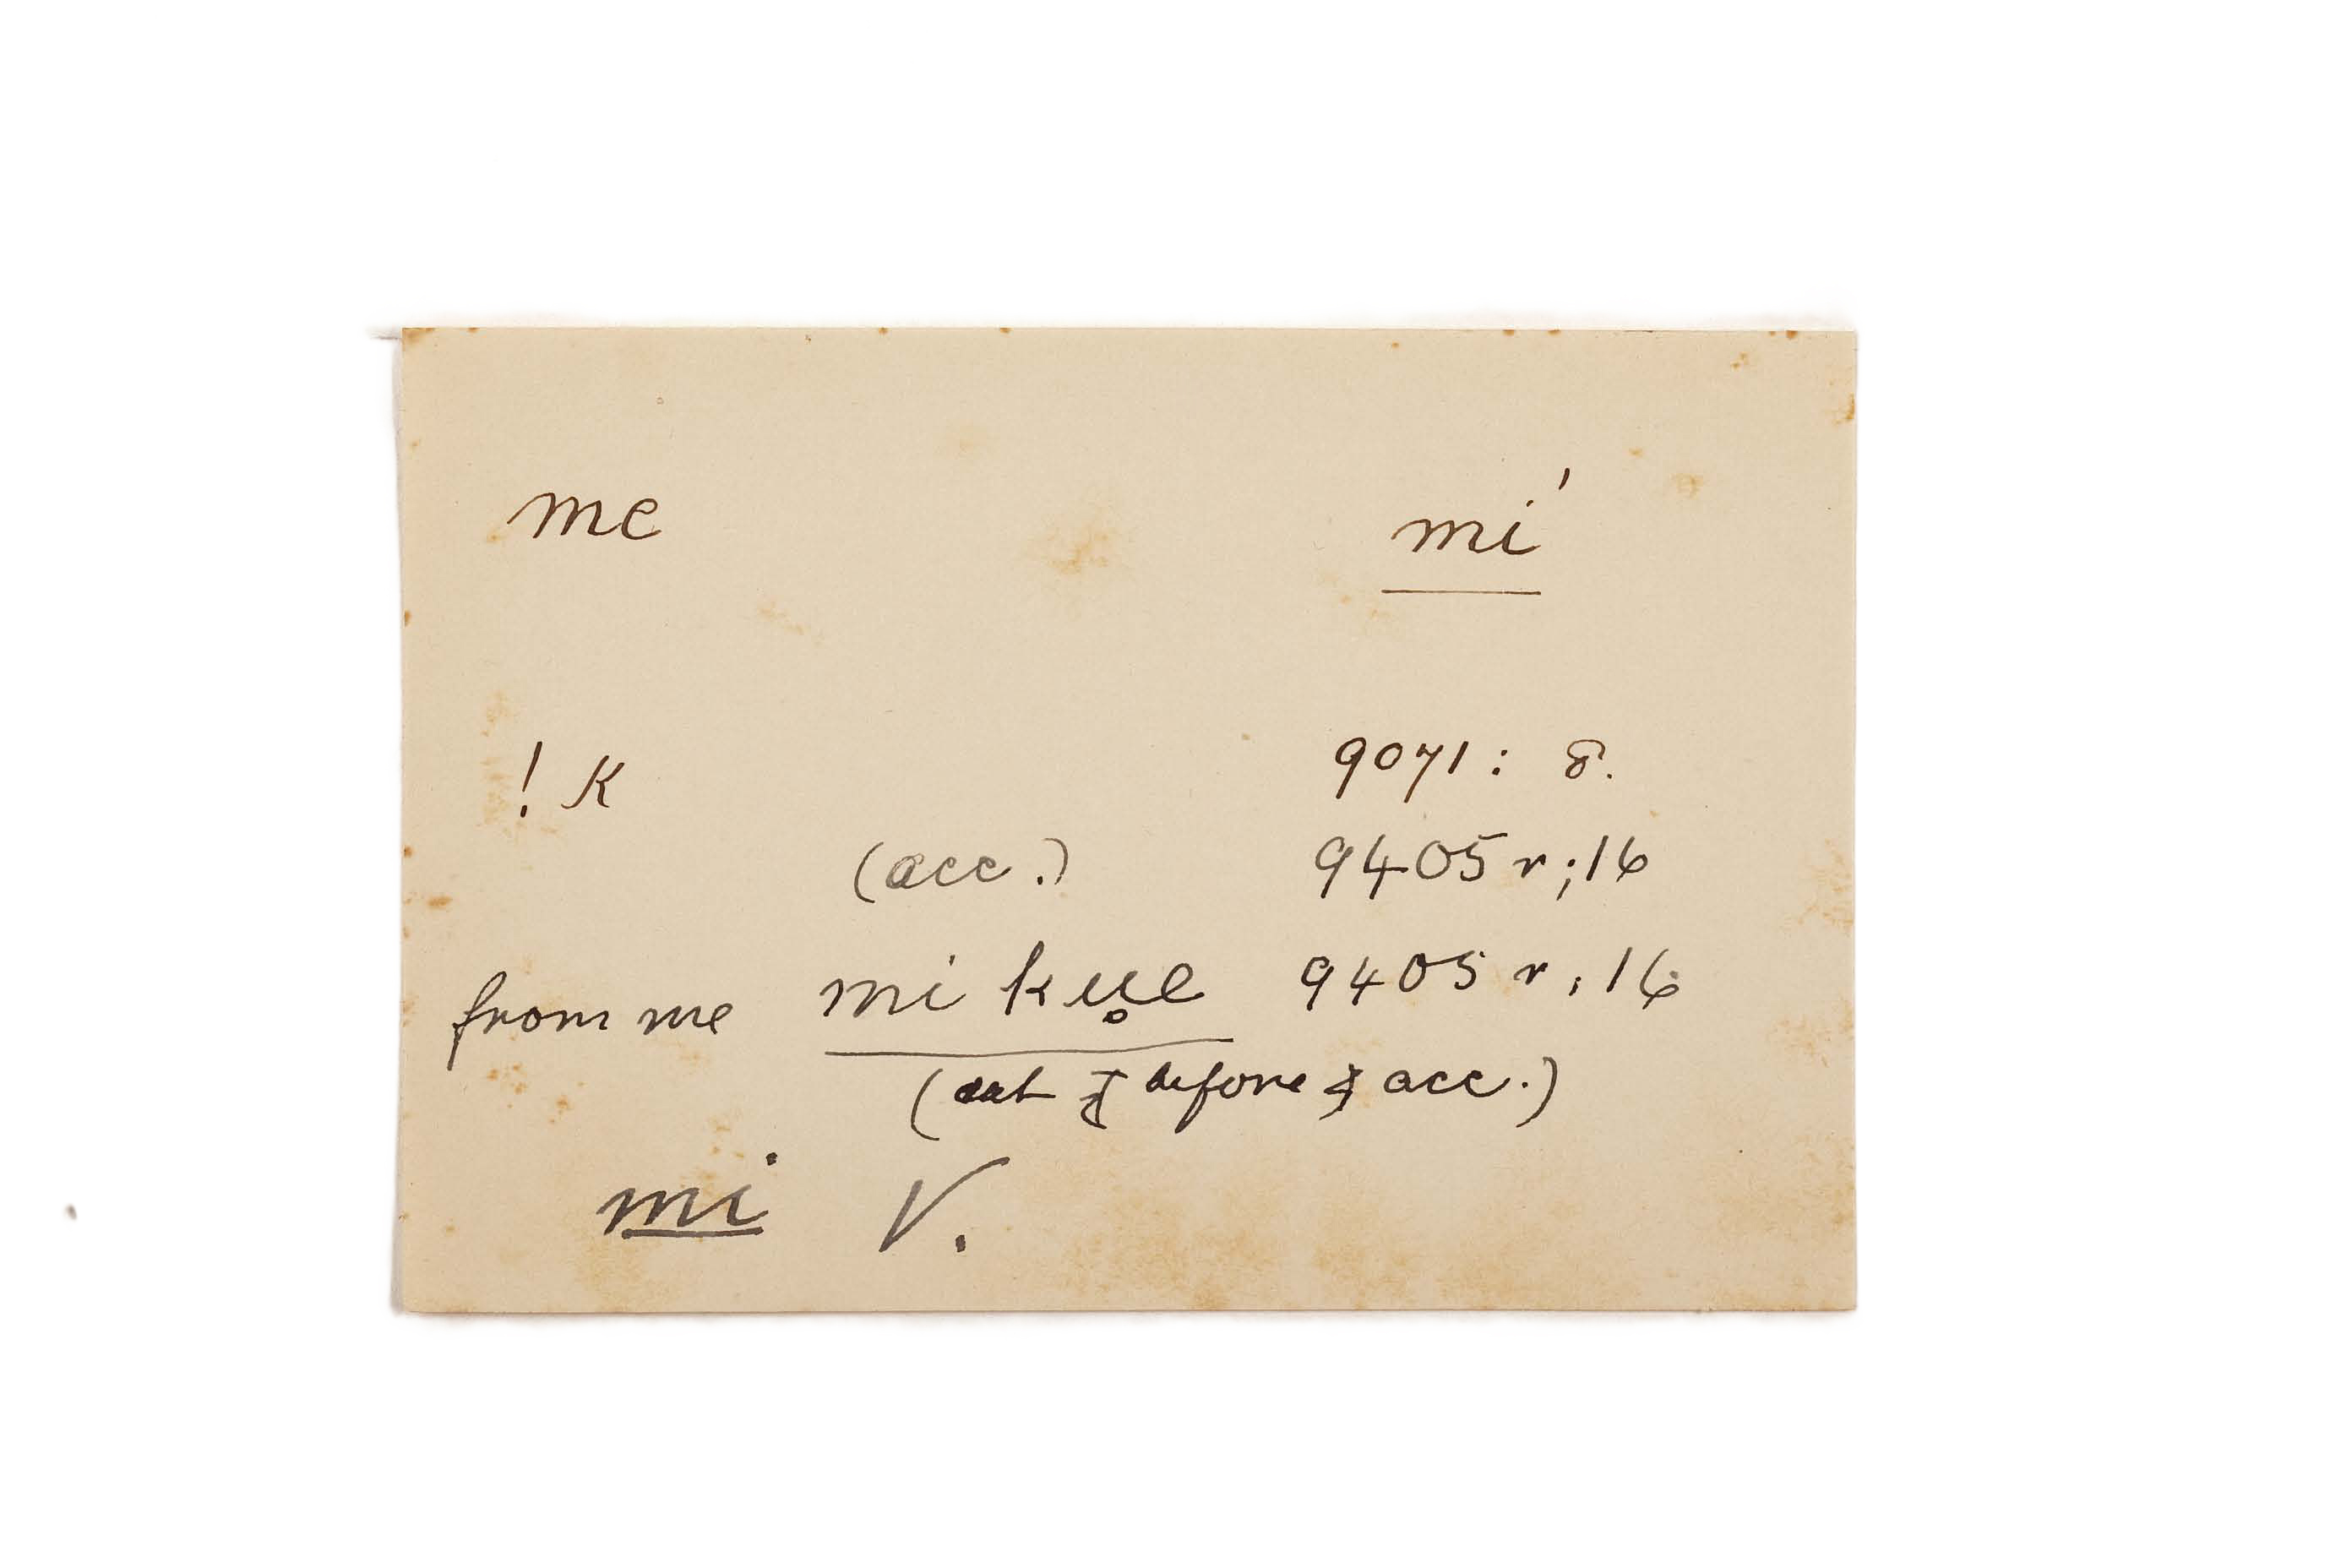 me mi'
! K 9071 : 8.
(acc.) 9405 r ; 16
from me mi ku̥e 9405 r ; 16
( before acc.)
mi V.